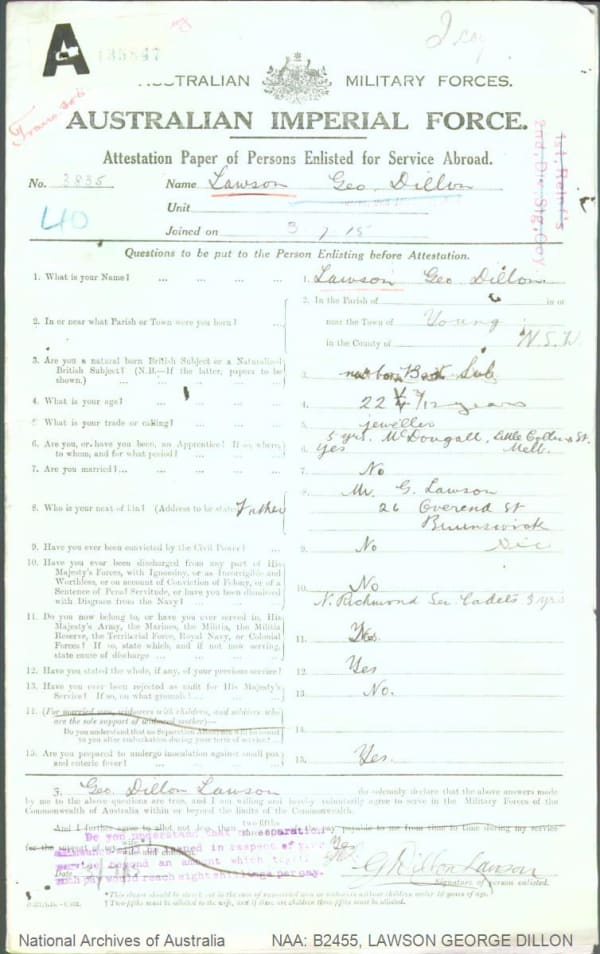 A
135847
AUSTRALIAN MILITARY FORCES.
AUSTRALIAN IMPERIAL FORCE.
Attestation Paper of Persons Enlisted for Service Abroad.
No. 3835 Name Lawson Geo. Dillon
40
Unit
Joined on 3/7/15
1st. Reinf's
2nd. Div. Sig. Coy.
Questions to be put to the Person Enlisting before Attestation.
1. What is your Name? ... ... ... ... 1. Lawson Geo Dillon
2. In or near what Parish or Town were you born? ... 2. In the Parish of in or
near the Town of Young
in the County of N.S.W
3. Are you a natural born British Subject or a Naturalized
British Subject? (N.B.—If the latter, papers to be
shown.) ... ... ... ... 3. nat born Brit Sub.
4. What is your age? ... ... ... ... 4. 22 years
5. What is your trade or calling? ... ... ... 5. jeweller
6. Are you, or have you been, an Apprentice? If so, where,
to whom, and for what period? ... ... 6. yes 5 yrs. McDougall, Little Collins St.
Melb.
7. Are you married? ... ... ... ... 7. No
8. Who is your next of kin? (Address to be stated) Father 8. Mr. G. Lawson
26 Overend St
Brunswick
Vic
9. Have you ever been convicted by the Civil Power? ... 9. No
10. Have you ever been discharged from any part of His
Majesty's Forces, with Ignominy, or as Incorrigible and
Worthless, or on account of Conviction of Felony, or of a
Sentence of Penal Servitude, or have you been dismissed
with Disgrace from the Navy? ... ... 10. No
N. Richmond Sen. Cadets 3 yrs
11. Do you now belong to, or have you ever served in, His
Majesty's Army, the Marines, the Militia, the Militia
Reserve, the Territorial Force, Royal Navy, or Colonial
Forces? If so, state which, and if not now serving,
state cause of discharge ... ... ... 11. Yes.
12. Have you stated the whole, if any, of your previous service? 12. Yes
13. Have you ever been rejected as unfit for His Majesty's
Service? If so, on what grounds? ... ... 13. No.
14. (For married men, widowers with children, and soldiers who
are the sole support of widowed mother)—
Do you understand that no Separation Allowance will be issued
to you after embarkation during your term of service? ... 14.
15. Are you prepared to undergo inoculation against small pox
and enteric fever? ... ... ... 15. Yes.
I, Geo. Dillon Lawson do solemnly declare that the above answers made
by me to the above questions are true, and I am willing and hereby voluntarily agree to serve in the Military Forces of the
Commonwealth of Australia within or beyond the limits of the Commonwealth.
two-fifths
And I further agree to allot not less than of the pay payable to me from time to time during my service
for the support of my
Do you understand that no separation
issued in respect of your
service beyond an amount which together
such pay would reach eight shillings per day.
Yes
Date G Dillon Lawson
Signature of person enlisted.
*This clause should be struck out in the case of unmarried men or widowers without children under 16 years of age.
† Two-fifths must be allotted to the wife, and if there are children three-fifths must be allotted.
National Archives of Australia NAA: B2455, LAWSON GEORGE DILLON